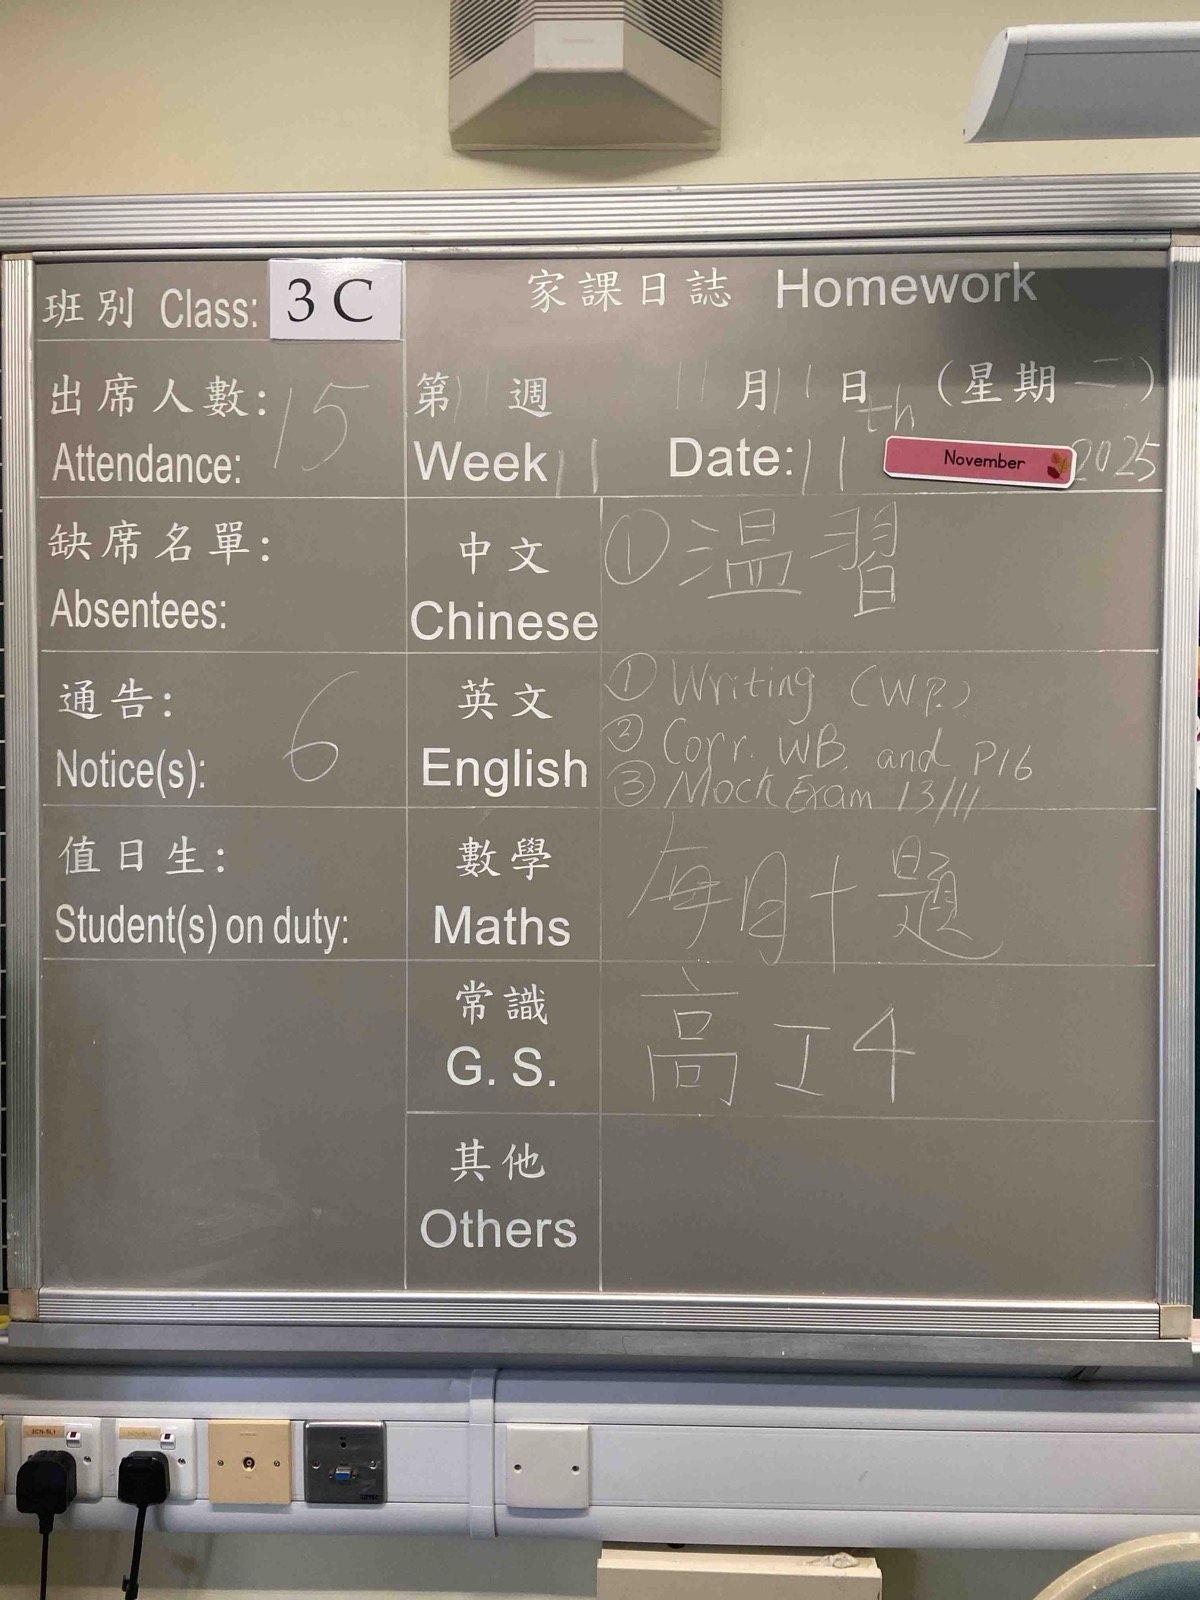 班別 Class: 3 C
家課日誌 Homework
出席人數: 15
Attendance:
第 11 週 11 月 11 日 (星期二)
Week 11 Date: 11th November 2025
缺席名單:
Absentees:
中文
Chinese
① 温習
通告: 6
Notice(s):
英文
English
① Writing (W.P.)
② Corr. WB. and P16
③ Mock Exam 13/11
值日生:
Student(s) on duty:
數學
Maths
每日十題
常識
G. S.
高 工4
其他
Others